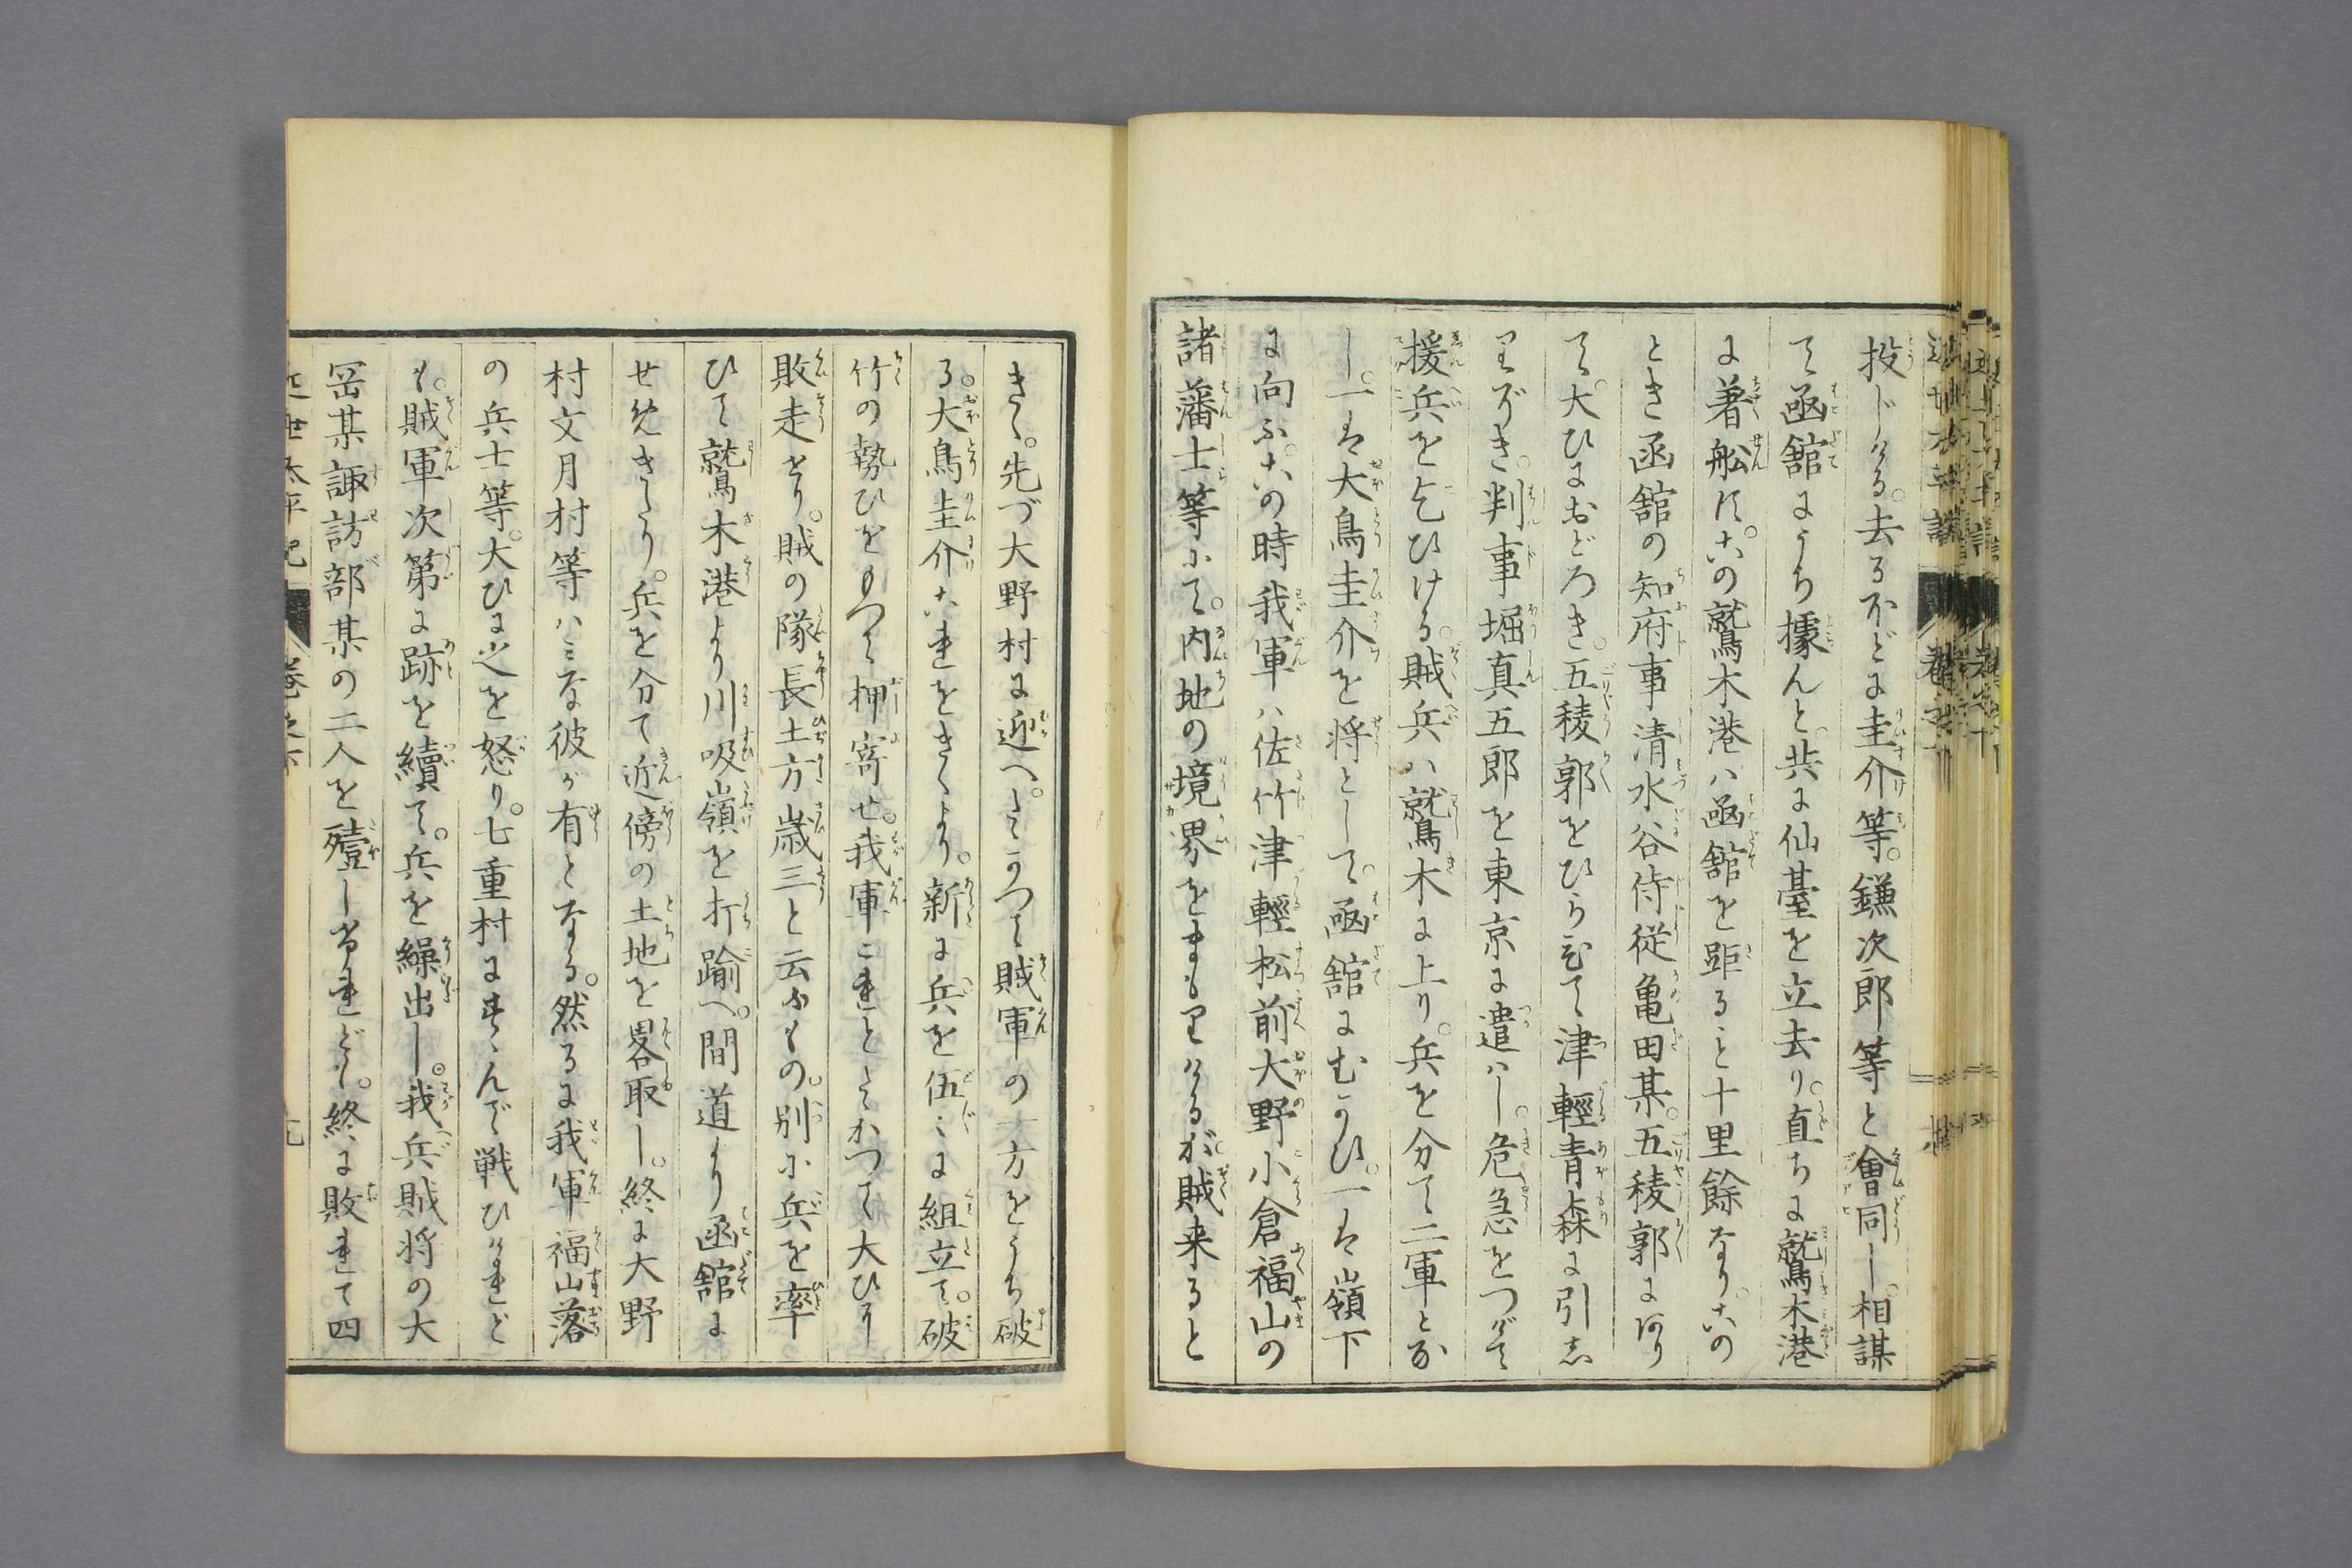 投じける。去るほどに圭介等。鎌次郎等と會同し。相謀
て函舘にうち據んと。共に仙臺を立去り。直ちに鷲木港
に着舩す。この鷲木港ハ函舘を距ること十里餘なり。この
とき函舘の知府事清水谷侍従亀田某。五稜郭にあり
て。大ひにおどろき。五稜郭をひらきて津輕青森に引し
りぞき。判事堀真五郎を東京に遣ハし。危急をつげて
援兵を乞ひける。賊兵ハ鷲木に上り。兵を分て二軍とな
し。一は大鳥圭介を将として。函舘にむかひ。一は嶺下
に向ふ。この時我軍ハ佐竹津輕松前大野小倉福山の
諸藩士等にて。内地の境界をまもりけるが。賊来ると
きく。先づ大野村に迎へたゝかつて賊軍の一方をうち破
る。大鳥圭介これをきくより。新に兵を伍々に組立て。破
竹の勢ひをもつて押寄せ。我軍これとたゝかつて大ひに
敗走せり。賊の隊長土方歳三と云ふもの。別に兵を率
ひて鷲木港より川吸嶺を打踰へ。間道より函舘に
せめきたり。兵を分て近傍の土地を畧取し。終に大野
村文月村等ハミな彼が有となる。然るに我軍福山落
の兵士等。大ひに之を怒り。七重村にすゝんで戦ひけれど
も。賊軍次第に跡を續て。兵を繰出し。我兵賊将の大
岡某諏訪部某の二人を殪しけれども。終に敗れて四
近世太平記 巻之下